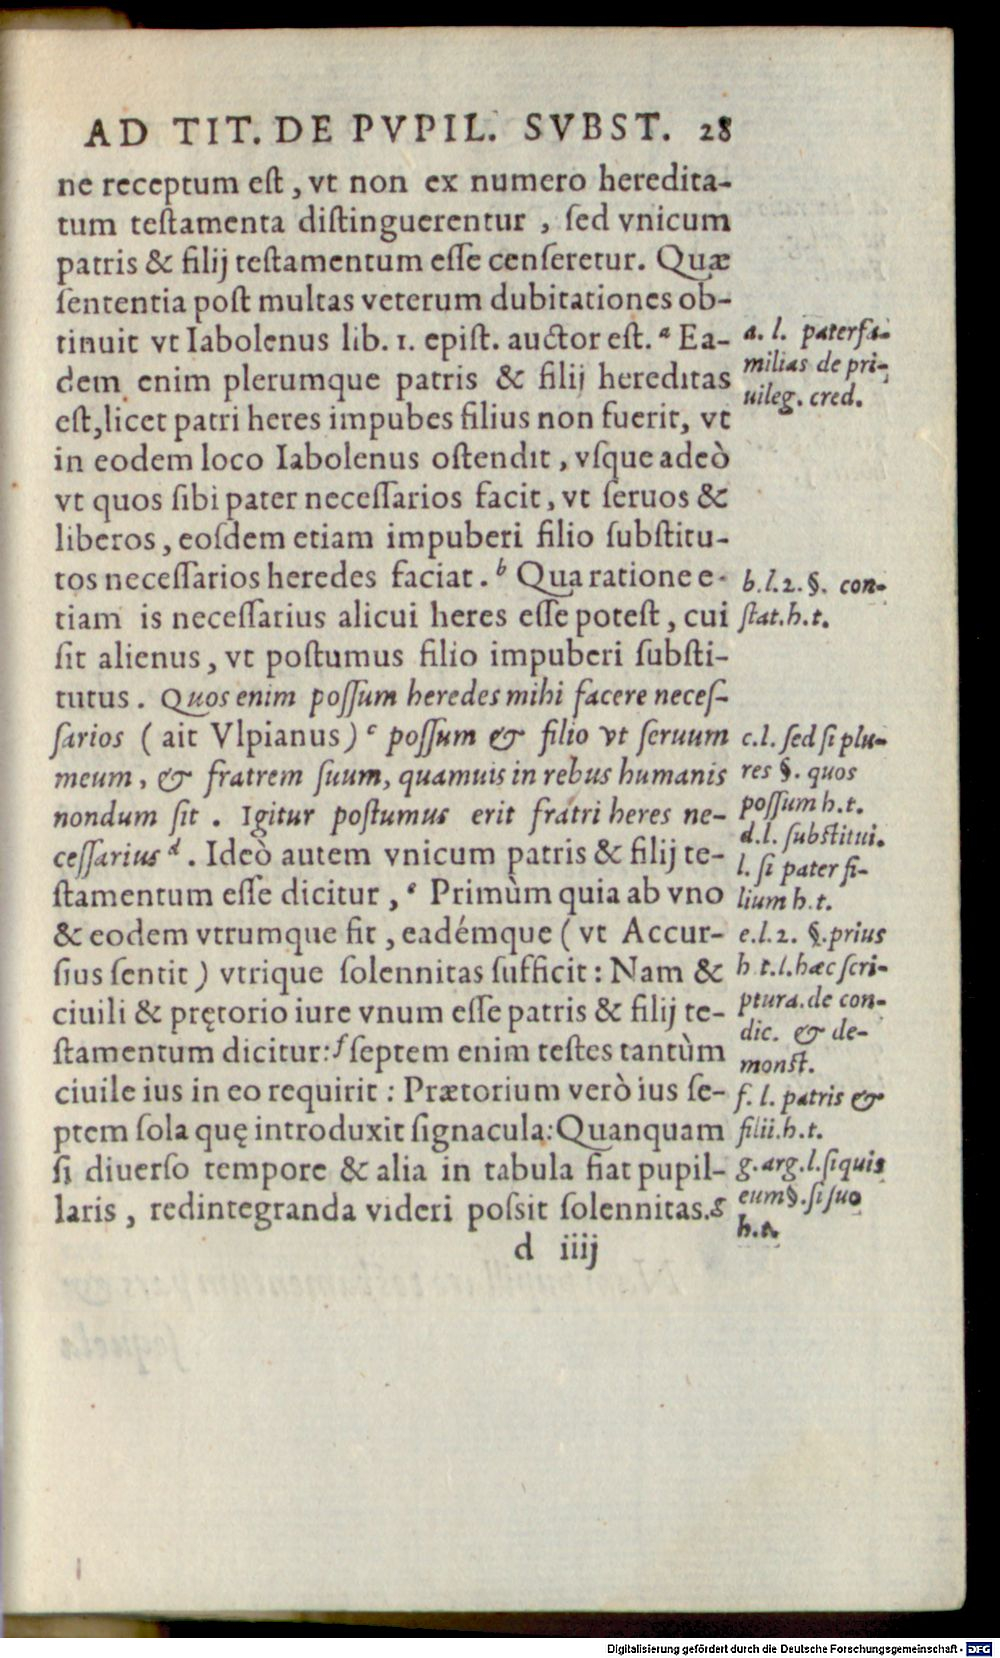 AD TIT. DE PVPIL. SVBST. 28
ne receptum eſt, vt non ex numero heredita-
tum teſtamenta diſtinguerentur, ſed vnicum
patris & filij teſtamentum eſſe cenſeretur. Quæ
ſententia poſt multas veterum dubitationes ob-
tinuit vt Iabolenus lib. 1. epiſt. auctor eſt. a Ea-
dem enim plerumque patris & filij hereditas
eſt, licet patri heres impubes filius non fuerit, vt
in eodem loco Iabolenus oſtendit, vſque adeò
vt quos ſibi pater neceſſarios facit, vt ſeruos &
liberos, eoſdem etiam impuberi filio ſubſtitu-
tos neceſſarios heredes faciat. b Qua ratione e-
tiam is neceſſarius alicui heres eſſe poteſt, cui
ſit alienus, vt poſtumus filio impuberi ſubſti-
tutus. Quos enim poſſum heredes mihi facere neceſ-
ſarios (ait Vlpianus) c poſſum & filio vt ſeruum
meum, & fratrem ſuum, quamuis in rebus humanis
nondum ſit. Igitur poſtumus erit fratri heres ne-
ceſſarius d. Ideò autem vnicum patris & filij te-
ſtamentum eſſe dicitur, e Primùm quia ab vno
& eodem vtrumque fit, eadémque (vt Accur-
ſius ſentit) vtrique ſolennitas ſufficit: Nam &
ciuili & prętorio iure vnum eſſe patris & filij te-
ſtamentum dicitur: f ſeptem enim teſtes tantùm
ciuile ius in eo requirit: Prætorium verò ius ſe-
ptem ſola quę introduxit ſignacula: Quanquam
ſi diuerſo tempore & alia in tabula fiat pupil-
laris, redintegranda videri poſsit ſolennitas. g
d iiij
a. l. paterfa-
milias de pri-
uileg. cred.
b. l. 2. §. con-
ſtat. h. t.
c. l. ſed ſi plu-
res §. quos
poſſum h. t.
d. l. ſubſtitui.
l. ſi pater fi-
lium h. t.
e. l. 2. §. prius
h. t. l. hæc ſcri-
ptura. de con-
dic. & de-
monſt.
f. l. patris &
filii. h. t.
g. arg. l. ſi quis
eum §. ſi ſuo
h. t.
Digitalisierung gefördert durch die Deutsche Forschungsgemeinschaft - DFG